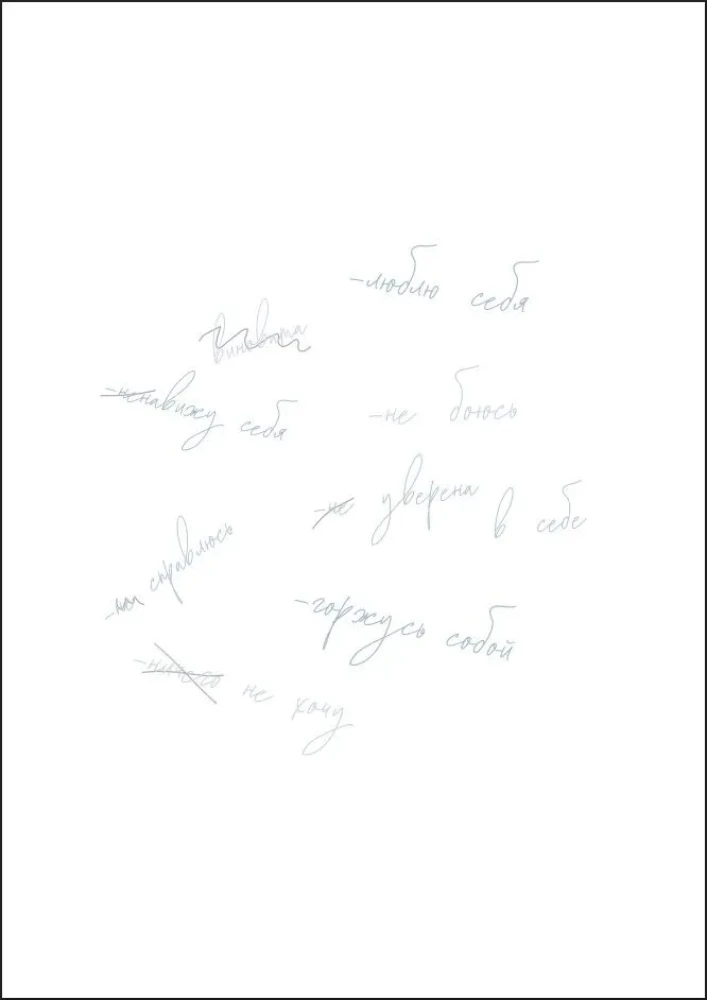 -люблю себя
виновата
-ненавижу себя
-не боюсь
-не уверена в себе
-не справлюсь
-горжусь собой
-ничего не хочу